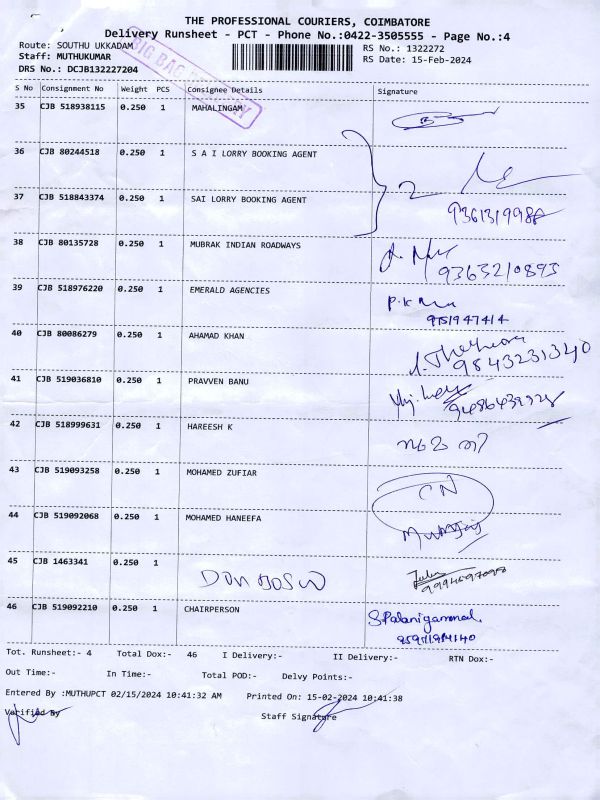 THE PROFESSIONAL COURIERS, COIMBATORE
Delivery Runsheet - PCT - Phone No.:0422-3505555 - Page No.:4
Route: SOUTHU UKKADAM RS No.: 1322272
Staff: MUTHUKUMAR RS Date: 15-Feb-2024
DRS No.: DCJB132227204
BIG BAG
S No Consignment No Weight PCS Consignee Details Signature
35 CJB 518938115 0.250 1 MAHALINGAM
36 CJB 80244518 0.250 1 S A I LORRY BOOKING AGENT
2
37 CJB 518843374 0.250 1 SAI LORRY BOOKING AGENT
38 CJB 80135728 0.250 1 MUBRAK INDIAN ROADWAYS
9363210893
39 CJB 518976220 0.250 1 EMERALD AGENCIES
9751947414
40 CJB 80086279 0.250 1 AHAMAD KHAN
9843231340
41 CJB 519036810 0.250 1 PRAVVEN BANU
42 CJB 518999631 0.250 1 HAREESH K
43 CJB 519093258 0.250 1 MOHAMED ZUFIAR
CN
44 CJB 519092068 0.250 1 MOHAMED HANEEFA
45 CJB 1463341 0.250 1 DON BOSCO
46 CJB 519092210 0.250 1 CHAIRPERSON S.Palaniyammal.
Tot. Runsheet:- 4 Total Dox:- 46 I Delivery:- II Delivery:- RTN Dox:-
Out Time:- In Time:- Total POD:- Delvy Points:-
Entered By :MUTHUPCT 02/15/2024 10:41:32 AM Printed On: 15-02-2024 10:41:38
Verified By Staff Signature